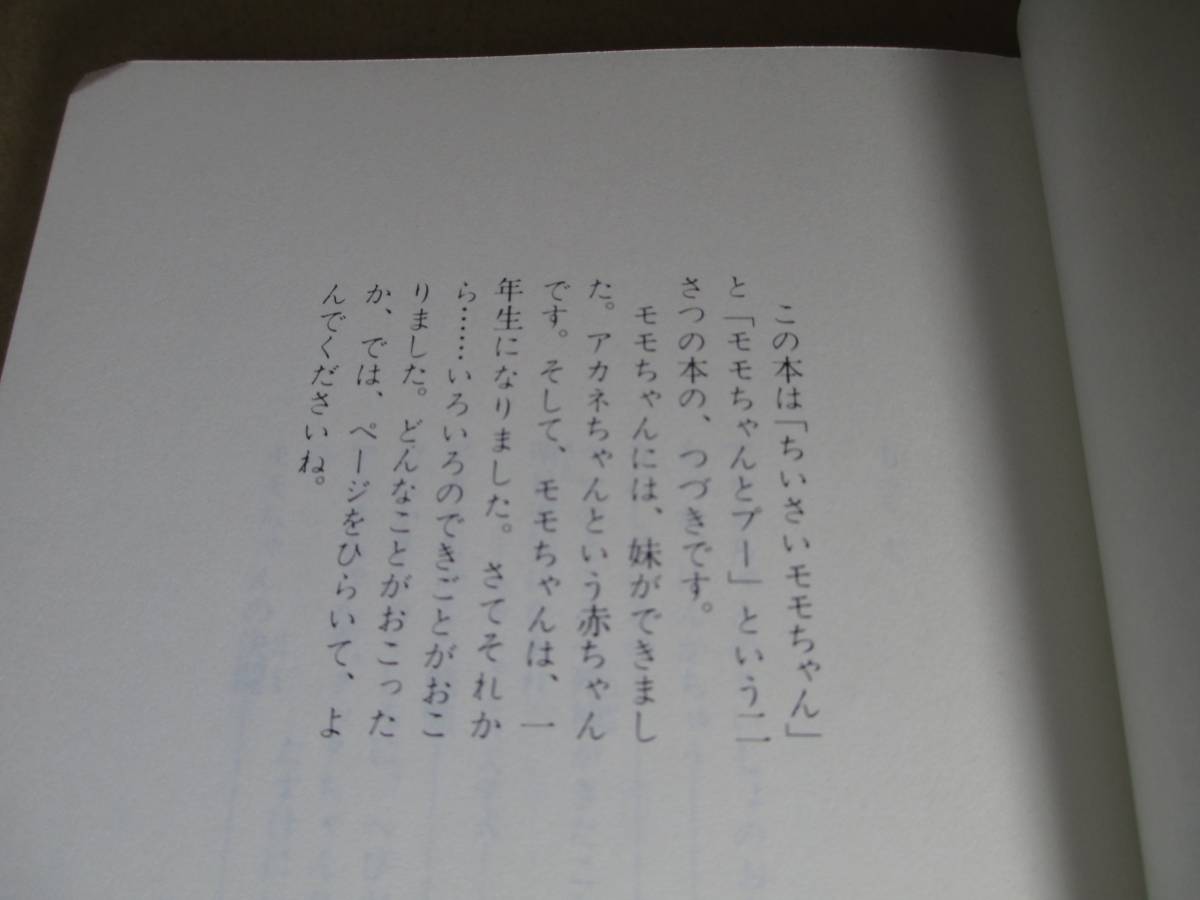 この本は「ちいさいモモちゃん」
と「モモちゃんとプー」という二
さつの本の、つづきです。
モモちゃんには、妹ができまし
た。アカネちゃんという赤ちゃん
です。そして、モモちゃんは、一
年生になりました。さてそれか
ら……いろいろのできごとがおこ
りました。どんなことがおこった
か、では、ページをひらいて、よ
んでくださいね。